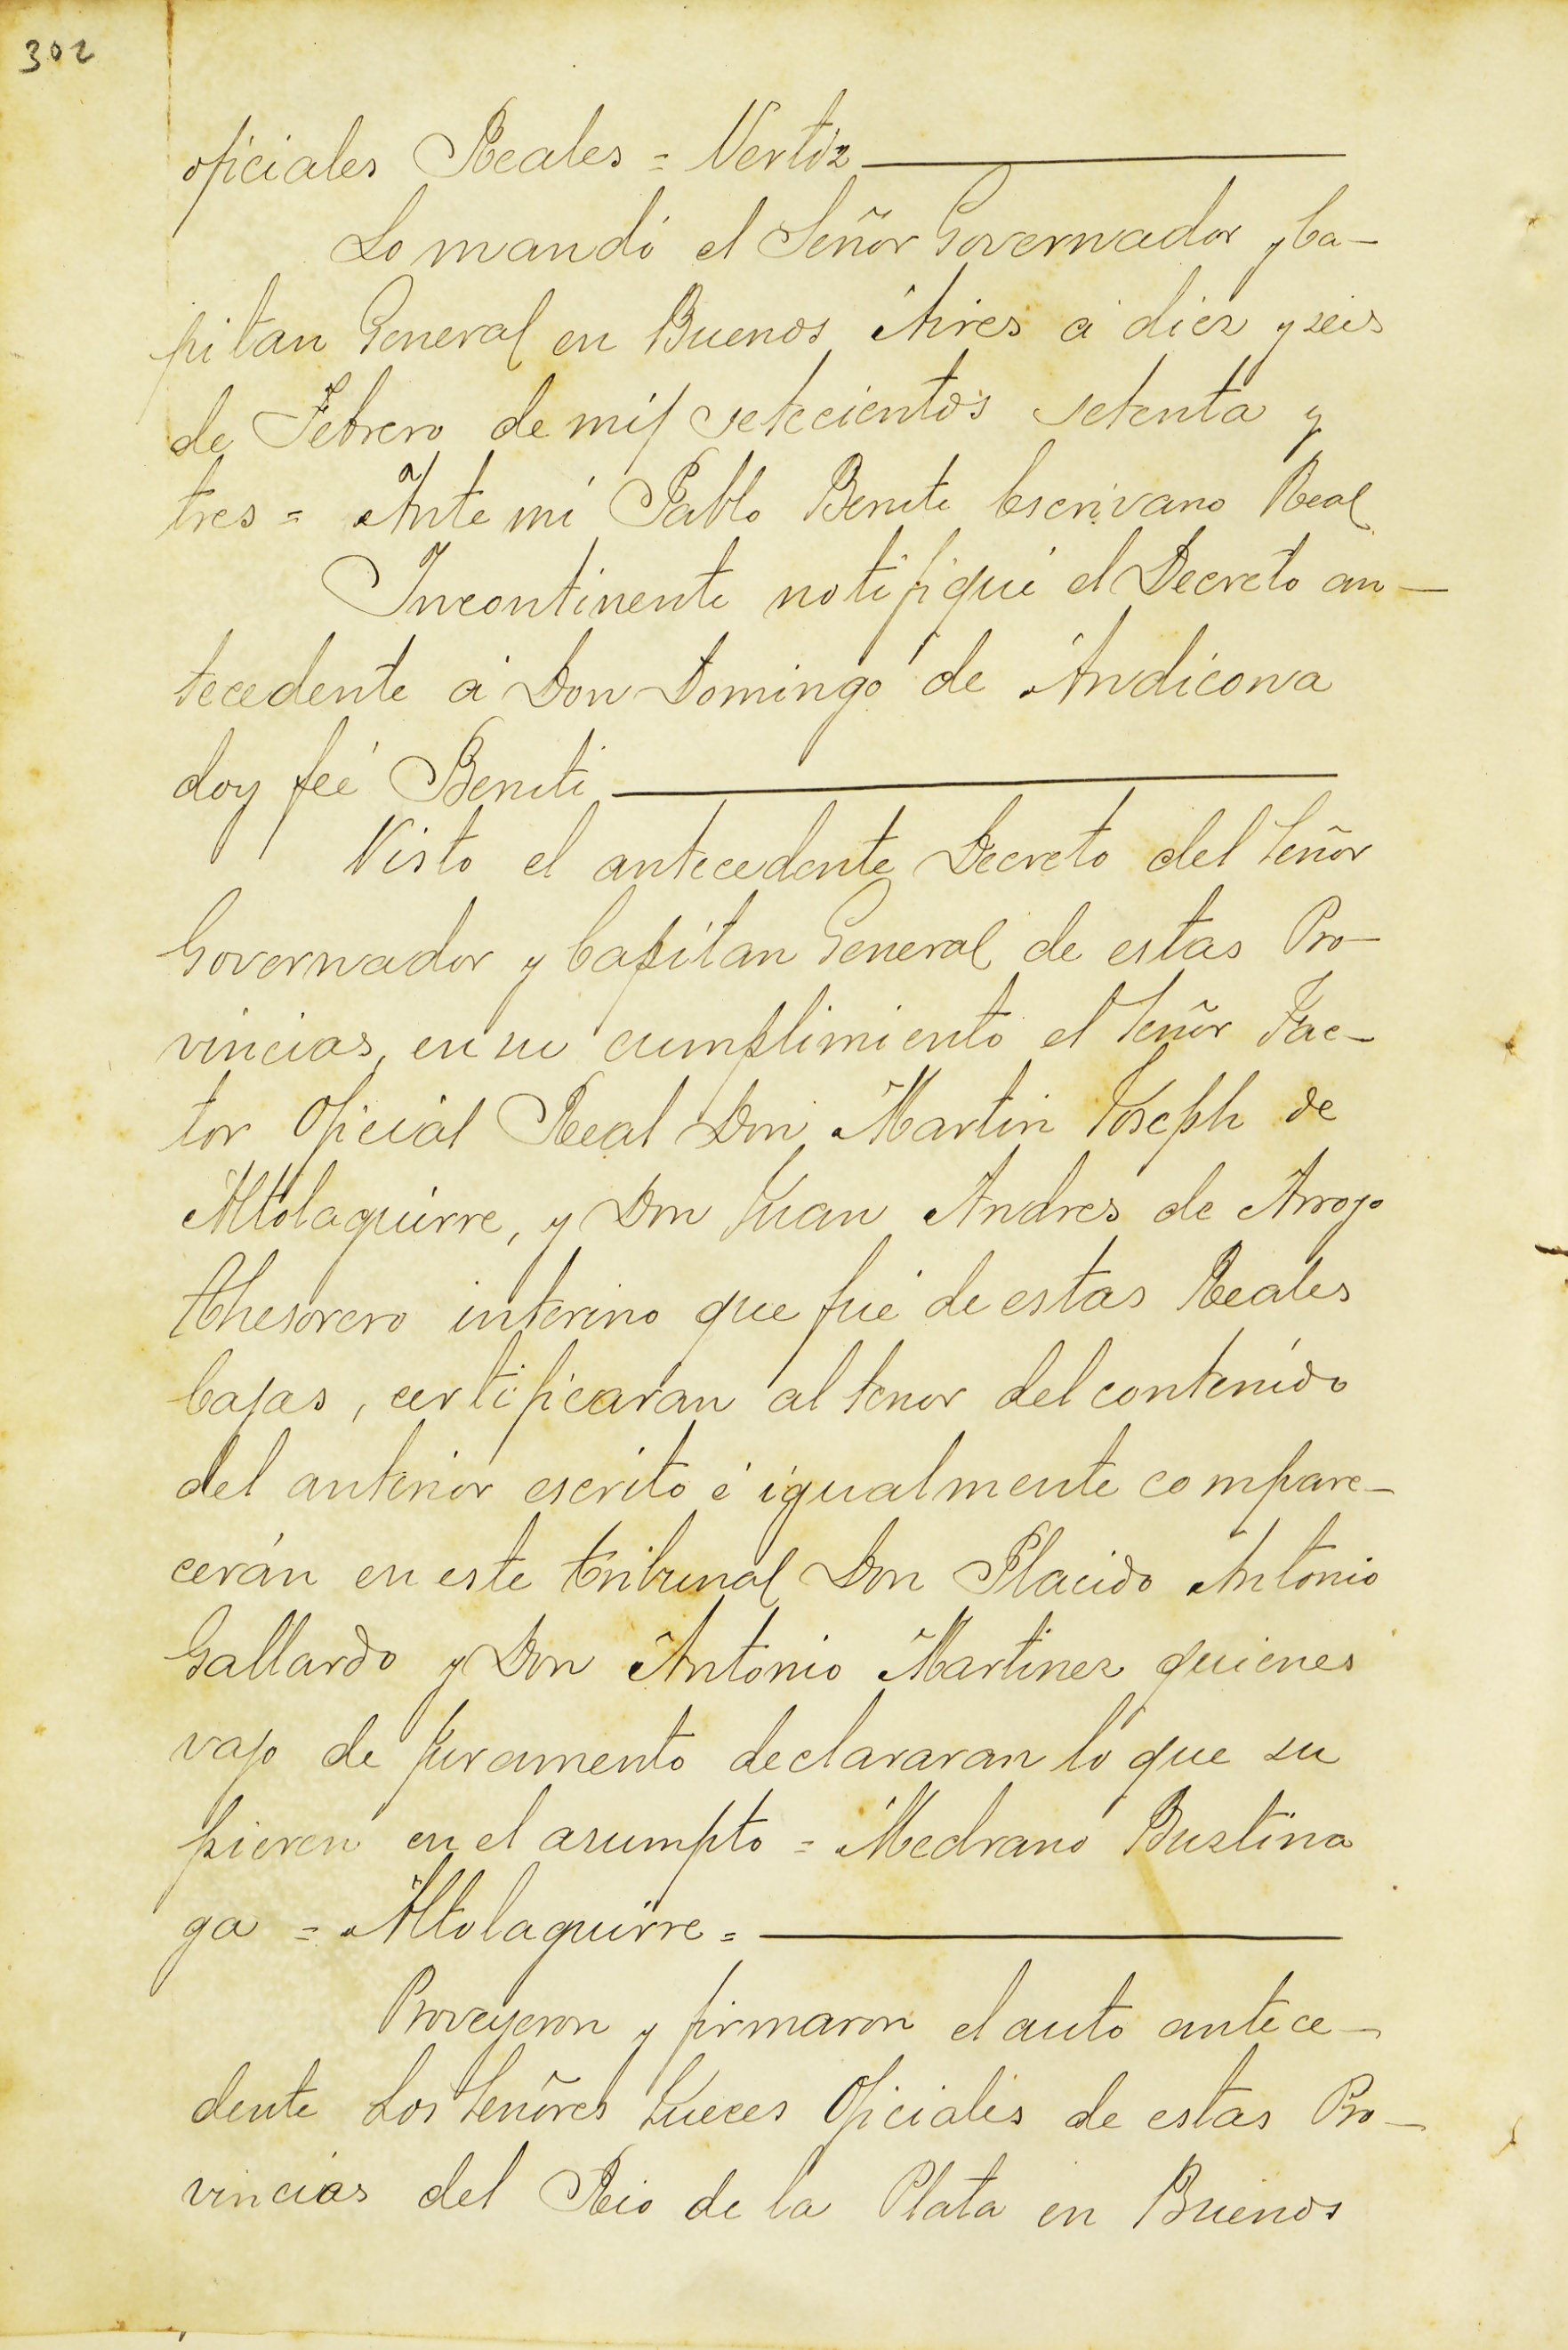 302
oficiales Reales = Vertiz
Lo mandó el Señor Governador y Ca-
pitan General en Buenos Aires á diez y seis
de Febrero de mil setecientos setenta y
tres = Ante mi Pablo Beruti Escrivano Real
Incontinente notifiqué el Decreto an-
tecedente á Don Domingo de Andicona
doy feé Beruti
Visto el antecedente Decreto del Señor
Governador y Capitan General de estas Pro-
vincias, en su cumplimiento el Señor Fac-
tor Oficial Real Don Martin Joseph de
Altolaguirre, y Don Juan Andres de Arroyo
Thesorero interino que fué de estas Reales
Cajas, certificaran al tenor del contenido
del anterior escrito é igualmente compare-
cerán en este tribunal Don Placido Antonio
Gallardo y Don Antonio Martinez quienes
vajo de juramento declararan lo que su
pieren en el asumpto = Medrano Bustina
ga = Altolaguirre =
Proveyeron y firmaron el auto antece-
dente Los Señores Jueces Oficiales de estas Pro-
vincias del Rio de la Plata en Buenos